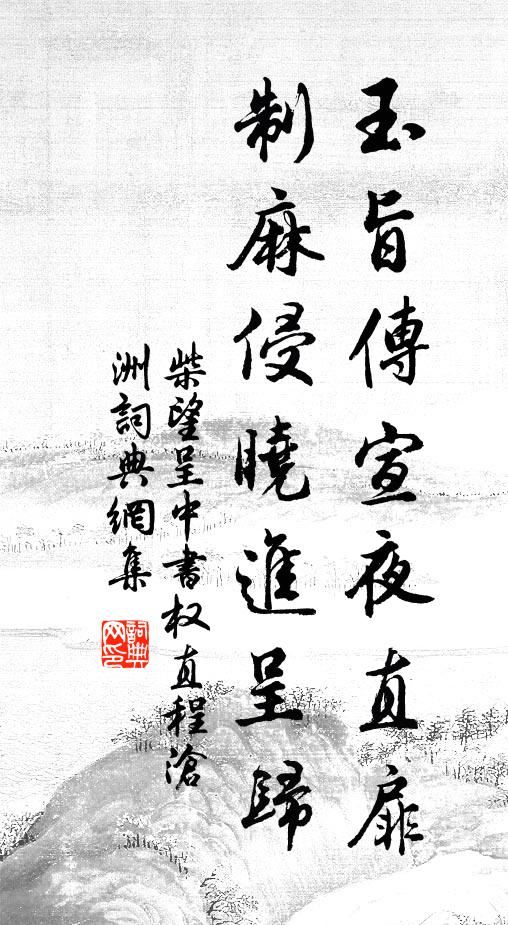 玉旨傳宣夜直扉
制麻侵曉進呈歸
柴望呈中書权直程滄
洲詞典網集
詞典网印